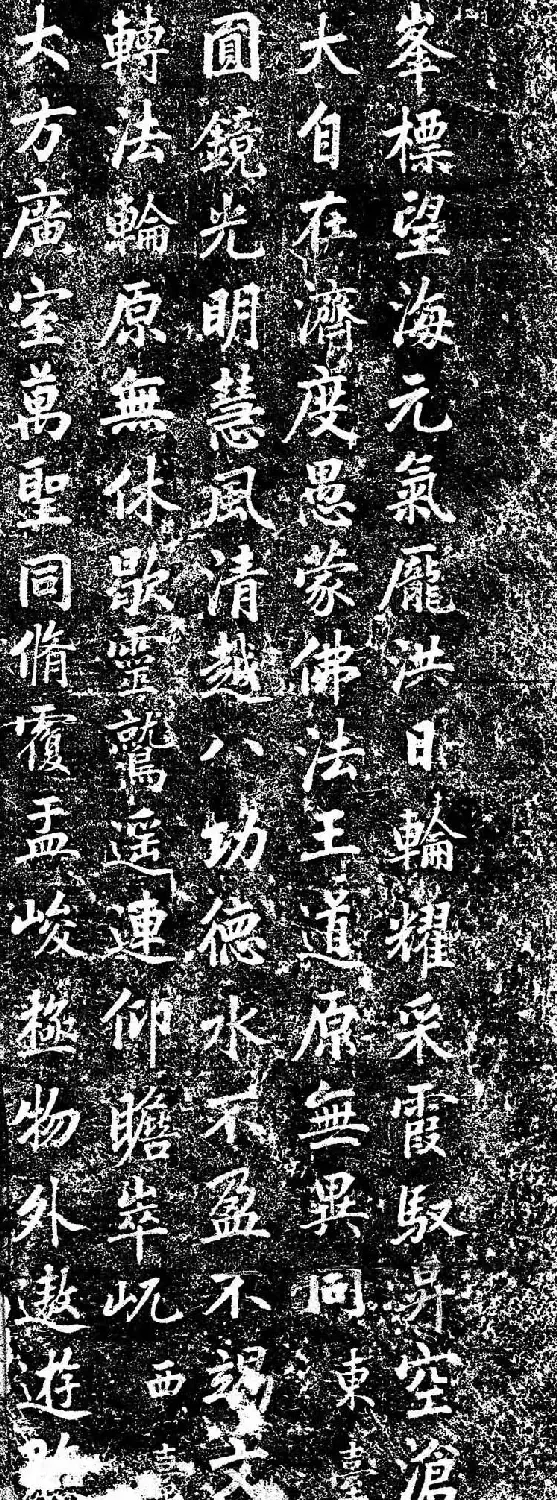 峯標望海元氣龐洪日輪耀采霞馭昇空滄
大自在濟度愚蒙佛法王道原無異同東臺
圓鏡光明慧風清越八功德水不盈不竭文
轉法輪原無休歇靈鷲遥連仰瞻崒屼西臺
大方廣室萬聖同脩覆盂峻極物外遨遊